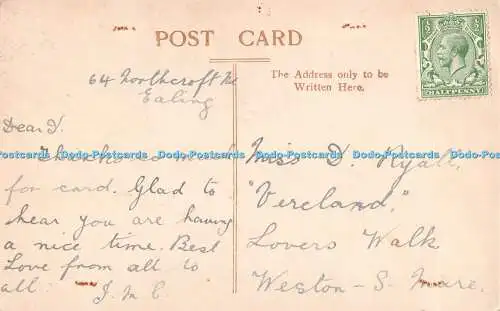 POST CARD
64 Northcroft Rd
Ealing
The Address only to be
Written Here.
HALFPENNY
Dear I.
Thanks
for card. Glad to
hear you are having
a nice time. Best
Love from all to
all. J.M.C
Miss I. Ryall,
"Vereland,"
Lovers Walk
Weston-S-Mare.
Dodo-Postcards Dodo-Postcards Dodo-Postcards Dodo-Postcards Dodo-Postcards